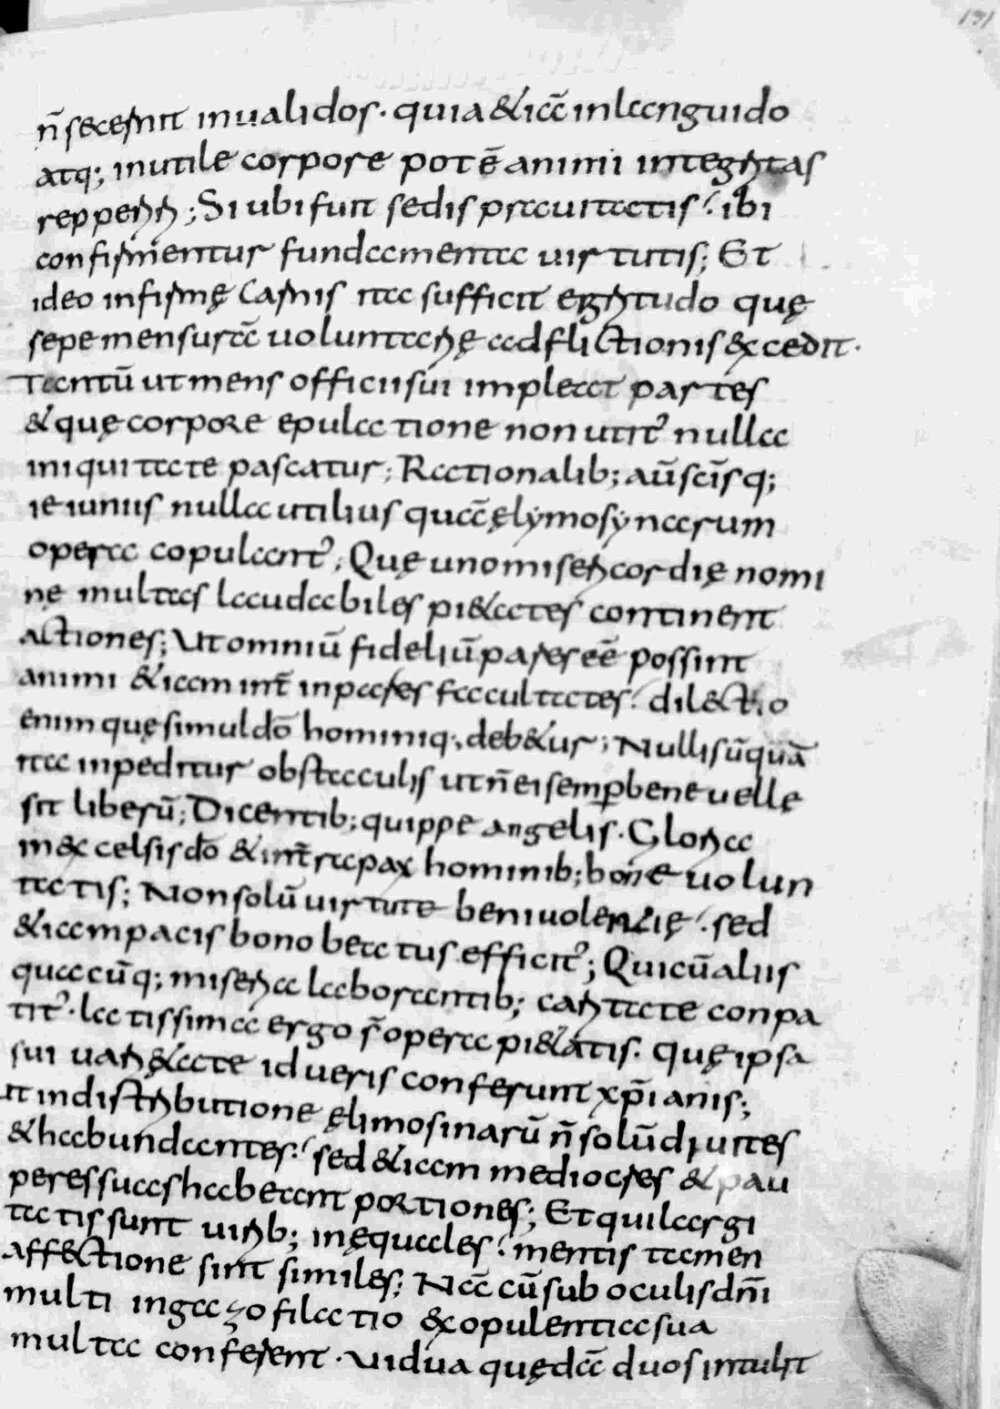 171
n̄ secernit inualidos· quia &iā inlanguido
atq; inutile corpore potē animi integritas
repperiri; Si ubi sunt sedis prauitatis ibi
confirmentur fundamenta uirtutis; Et
ideo infirmę carnis ita sufficit egritudo quę
sepe mensurā uoluntarię adflictionis excedit·
Tantū ut mens officii sui impleat partes
& quę corpore epulatione non utit᷒ nulla
iniquitate pascatur; Rationalib; aū sc̄isq;
ieiuniis nulla utilius quā ęlymosynarum
opera copulant᷒; Quę uno misericordię nomi
ne multas laudabiles pi&ates continent
actiones; Ut omniū fideliū pares eē possint
animi &iam int̄ inpares facultates dilectio
enim quę simul dō hominiq; deb&ur; Nullis ūquā
ita inpeditur obstaculis ut n̄ ei semp̄ bene uelle
sit liberū; Dicentib; quippe angelis· Gloria
in excelsis dō & in t̄ra pax hominib; bone uolun
tatis; Non solū uirtute beniuolentię sed
&iam pacis bono beatus efficit᷒; Quicū aliis
quacūq; miseria laborantib; caritate conpa
tit᷒· latissima ergo s̄ opera pi&atis· quę ipsa
sui uari&ate id ueris conferunt xp̄ianis;
ut in distributione ęlimosinarū n̄ solū diuites
& habundantes sed &iam mediocres & pau
peres suas habeant portiones; Et qui largi
tatis sunt uirib; inęquales mentis tamen
affectione sint similes; Nā cū sub oculis dn̄i
multi in gazofilatio ex opulentia sua
multa conferent· uidua quędā duos intulit